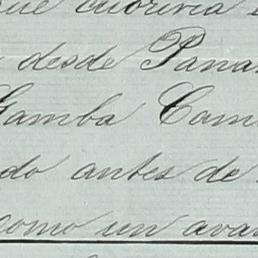 que cubriría
desde Pana
Gamba Cam
do antes de
como un avan